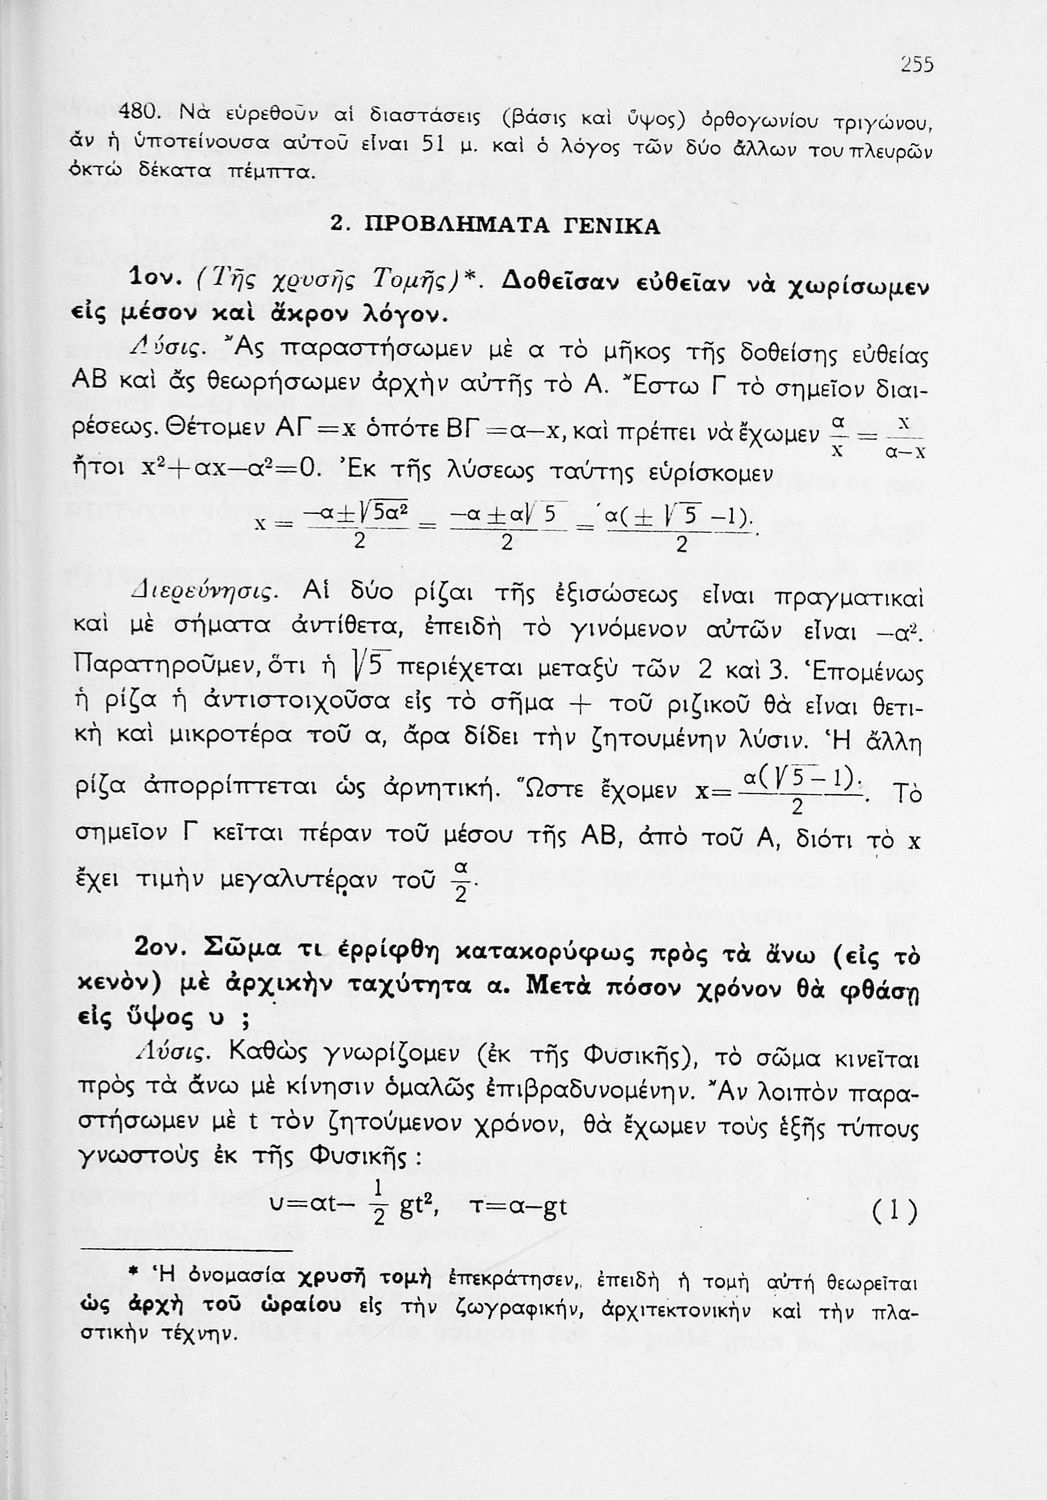 255
480. Νὰ εὑρεθοῦν αἱ διαστάσεις (βάσις καὶ ὕψος) ὀρθογωνίου τριγώνου,
ἂν ἡ ὑποτείνουσα αὐτοῦ εἶναι 51 μ. καὶ ὁ λόγος τῶν δύο ἄλλων του πλευρῶν
ὀκτὼ δέκατα πέμπτα.
2. ΠΡΟΒΛΗΜΑΤΑ ΓΕΝΙΚΑ
1ον. (Τῆς χρυσῆς Τομῆς)*. Δοθεῖσαν εὐθεῖαν νὰ χωρίσωμεν
εἰς μέσον καὶ ἄκρον λόγον.
Λύσις. Ἂς παραστήσωμεν μὲ α τὸ μῆκος τῆς δοθείσης εὐθείας
ΑΒ καὶ ἂς θεωρήσωμεν ἀρχὴν αὐτῆς τὸ Α. Ἔστω Γ τὸ σημεῖον διαι-
ρέσεως. Θέτομεν ΑΓ=x ὁπότε ΒΓ=α—x, καὶ πρέπει νὰ ἔχωμεν α/x = x/(α—x)
ἤτοι x²+αx—α²=0. Ἐκ τῆς λύσεως ταύτης εὑρίσκομεν
x = (—α±√5α²)/2 = (—α±α√5)/2 = α(±√5 —1)/2.
Διερεύνησις. Αἱ δύο ρίζαι τῆς ἐξισώσεως εἶναι πραγματικαὶ
καὶ μὲ σήματα ἀντίθετα, ἐπειδὴ τὸ γινόμενον αὐτῶν εἶναι —α².
Παρατηροῦμεν, ὅτι ἡ √5 περιέχεται μεταξὺ τῶν 2 καὶ 3. Ἑπομένως
ἡ ρίζα ἡ ἀντιστοιχοῦσα εἰς τὸ σῆμα + τοῦ ριζικοῦ θὰ εἶναι θετι-
κὴ καὶ μικροτέρα τοῦ α, ἄρα δίδει τὴν ζητουμένην λύσιν. Ἡ ἄλλη
ρίζα ἀπορρίπτεται ὡς ἀρνητική. Ὥστε ἔχομεν x= α(√5—1)/2. Τὸ
σημεῖον Γ κεῖται πέραν τοῦ μέσου τῆς ΑΒ, ἀπὸ τοῦ Α, διότι τὸ x
ἔχει τιμὴν μεγαλυτέραν τοῦ α/2.
2ον. Σῶμα τι ἐρρίφθη κατακορύφως πρὸς τὰ ἄνω (εἰς τὸ
κενὸν) μὲ ἀρχικὴν ταχύτητα α. Μετὰ πόσον χρόνον θὰ φθάσῃ
εἰς ὕψος υ ;
Λύσις. Καθὼς γνωρίζομεν (ἐκ τῆς Φυσικῆς), τὸ σῶμα κινεῖται
πρὸς τὰ ἄνω μὲ κίνησιν ὁμαλῶς ἐπιβραδυνομένην. Ἂν λοιπὸν παρα-
στήσωμεν μὲ t τὸν ζητούμενον χρόνον, θὰ ἔχωμεν τοὺς ἑξῆς τύπους
γνωστοὺς ἐκ τῆς Φυσικῆς :
υ=αt— 1/2 gt², τ=α—gt (1)
* Ἡ ὀνομασία χρυσῆ τομὴ ἐπεκράτησεν, ἐπειδὴ ἡ τομὴ αὐτή θεωρεῖται
ὡς ἀρχὴ τοῦ ὡραίου εἰς τὴν ζωγραφικήν, ἀρχιτεκτονικὴν καὶ τὴν πλα-
στικὴν τέχνην.